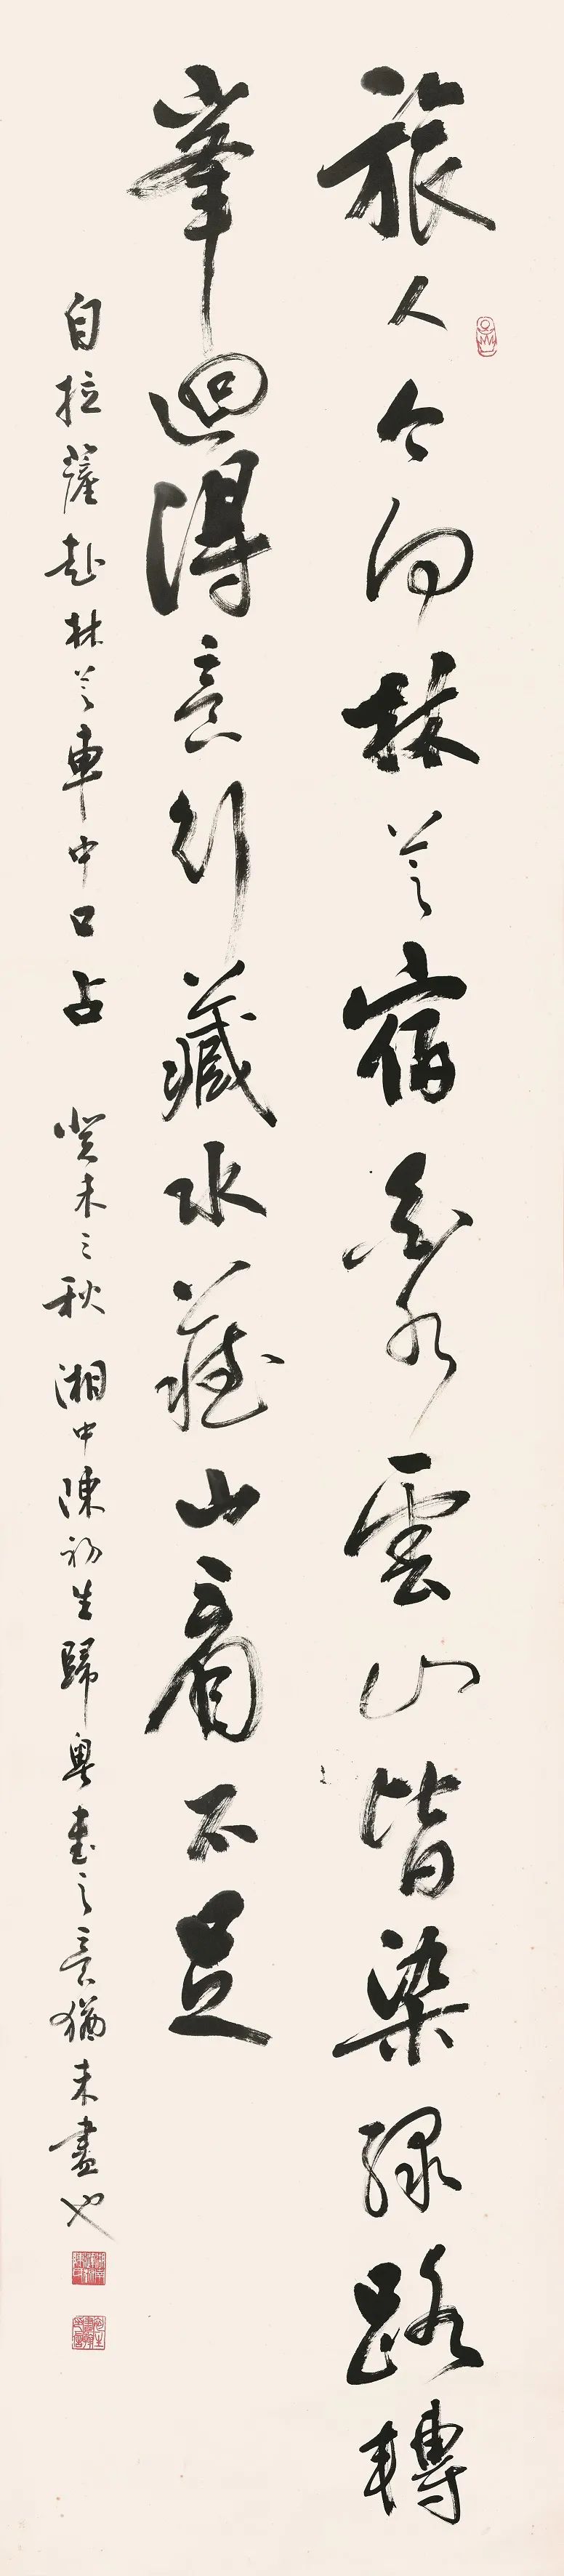 旅人今向林芝宿気水雲山皆染綠路轉
峯迴得意行藏水藏山看不足
自拉薩赴林芝車中口占 癸未之秋 湘中陳初生歸粵書之意猶未盡也